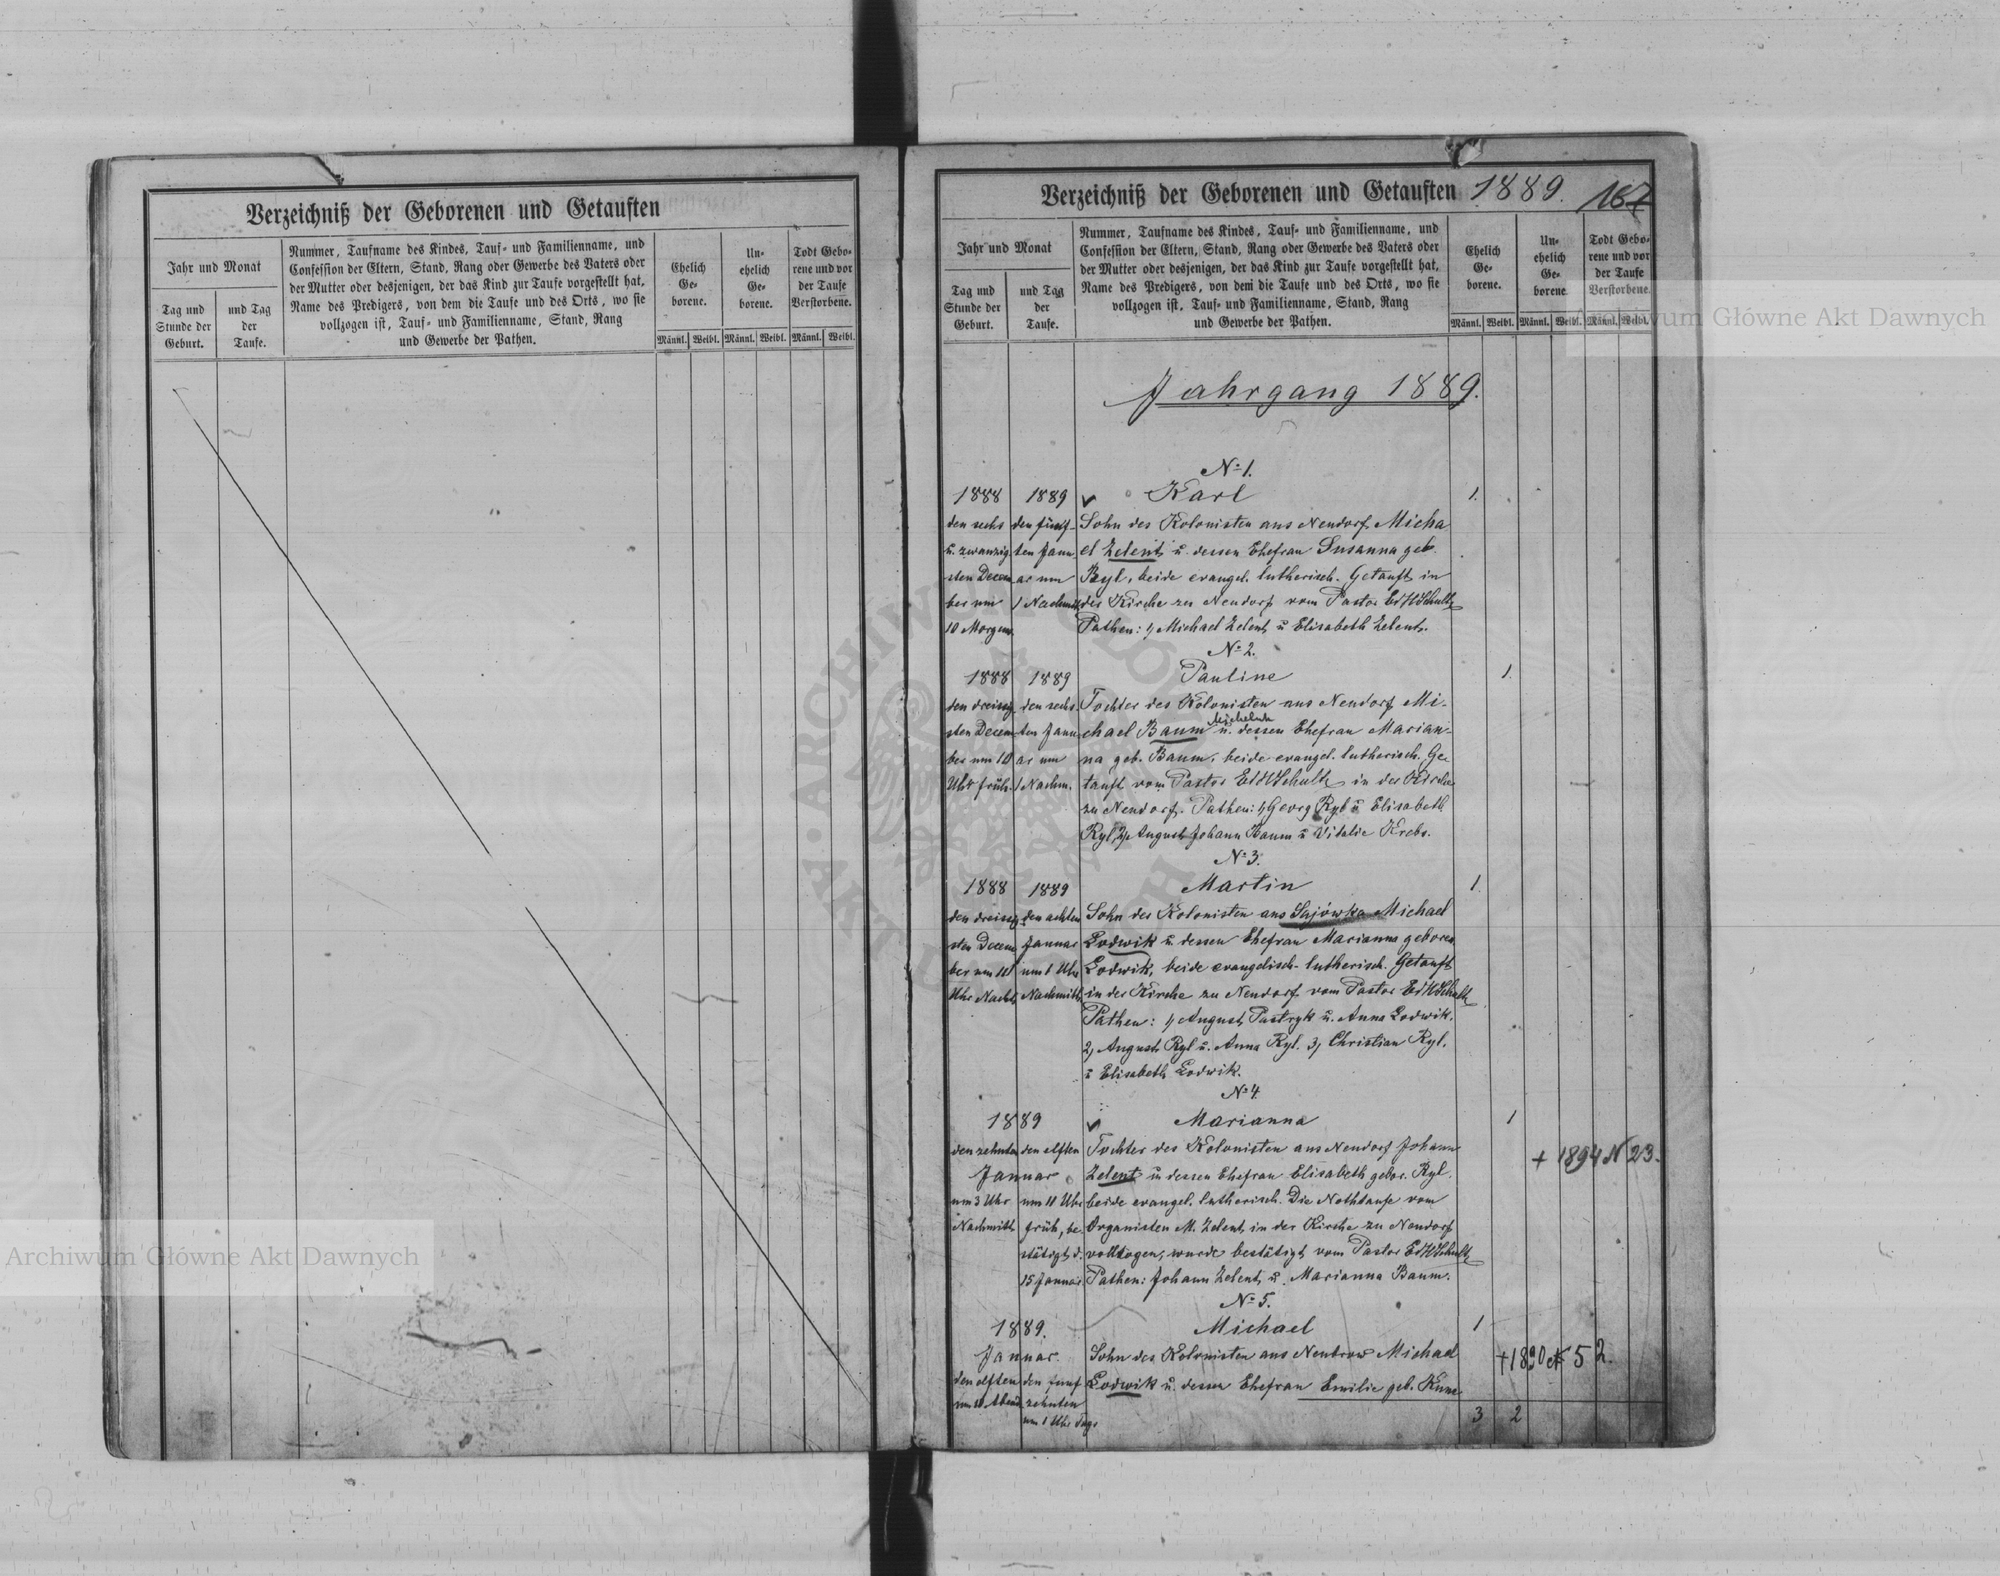 Verzeichniß der Geborenen und Getauften
Jahr und Monat
Tag und
Stunde der
Geburt.
und Tag
der
Taufe.
Nummer, Taufname des Kindes, Tauf- und Familienname, und
Confession der Eltern, Stand, Rang oder Gewerbe des Vaters oder
der Mutter oder desjenigen, der das Kind zur Taufe vorgestellt hat,
Name des Predigers, von dem die Taufe und des Orts, wo sie
vollzogen ist, Tauf- und Familienname, Stand, Rang
und Gewerbe der Pathen.
Ehelich
Ge-
borene.
Un-
ehelich
Ge-
borene.
Todt Gebo-
rene und vor
der Taufe
Verstorbene.
Männl. Weibl. Männl. Weibl. Männl. Weibl.
Verzeichniß der Geborenen und Getauften 1889. 167
Jahr und Monat
Tag und
Stunde der
Geburt.
und Tag
der
Taufe.
Nummer, Taufname des Kindes, Tauf- und Familienname, und
Confession der Eltern, Stand, Rang oder Gewerbe des Vaters oder
der Mutter oder desjenigen, der das Kind zur Taufe vorgestellt hat,
Name des Predigers, von dem die Taufe und des Orts, wo sie
vollzogen ist, Tauf- und Familienname, Stand, Rang
und Gewerbe der Pathen.
Ehelich
Ge-
borene.
Un-
ehelich
Ge-
borene
Todt Gebo-
rene und vor
der Taufe
Verstorbene.
Männl. Weibl. Männl. Weibl. Männl. Weibl.
Jahrgang 1889.
№ 1.
1888
den sechs
u. zwanzig
sten Decem
ber um
10 Morgens.
1889
den fünf-
ten Janu
ar um
1 Nachmitt
Karl
Sohn des Kolonisten aus Neudorf Micha
el Zelent u. dessen Ehefrau Susanna geb.
Ryl, beide evangel. lutherisch. Getauft in
der Kirche zu Neudorf vom Pastor EdHSchultz
Pathen: 1, Michael Zelent u Elisabeth Zelent.
1.
№ 2.
1888
den dreissig
sten Decem
ber um 10
Uhr früh.
1889
den sechs
ten Janu
ar um
1 Nachm.
Pauline
Tochter des Kolonisten aus Neudorf Mi-
chael Baum u. dessen Ehefrau Marian-
na geb. Baum, beide evangel. lutherisch. Ge
tauft vom Pastor EdHSchultz in der Kirche
zu Neudorf. Pathen: 1, Georg Ryl u Elisabeth
Ryl, 2, August Johann Baum u Vitalie Krebs.
1.
№ 3.
1888
den dreissig
sten Decem
ber um 11
Uhr Nachts
1889
den achten
Januar
um 1 Uhr
Nachmitt.
Martin
Sohn des Kolonisten aus Sajówka Michael
Lodwik u. dessen Ehefrau Marianna geboren
Lodwik, beide evangelisch-lutherisch. Getauft
in der Kirche zu Neudorf vom Pastor EdHSchultz
Pathen: 1, August Pastryk u. Anna Lodwik.
2, August Ryl u. Anna Ryl. 3, Christian Ryl.
u Elisabeth Lodwik.
1.
№ 4.
1889
den zehnten
den elften
Januar
um 3 Uhr
Nachmitt.
um 11 Uhr
früh, be-
stätigt d.
15 Januar
Marianna
Tochter des Kolonisten aus Neudorf Johann
Zelent u dessen Ehefrau Elisabeth gebor. Ryl.
beide evangel. lutherisch. Die Nothtaufe vom
Organisten M. Zelent in der Kirche zu Neudorf
vollzogen, wurde bestätigt vom Pastor EdHSchultz
Pathen: Johann Zelent u. Marianna Baum.
1
+ 1894 N 23.
№ 5.
1889.
Januar.
den elften
den funf
zehnten
um 1 Uhr Tags
Michael
Sohn des Kolonisten aus Neubrow Michael
Lodwik u. dessen Ehefrau Emilie geb. Kunz
1
+ 1890 № 52.
3 2
Archiwum Główne Akt Dawnych
Archiwum Główne Akt Dawnych